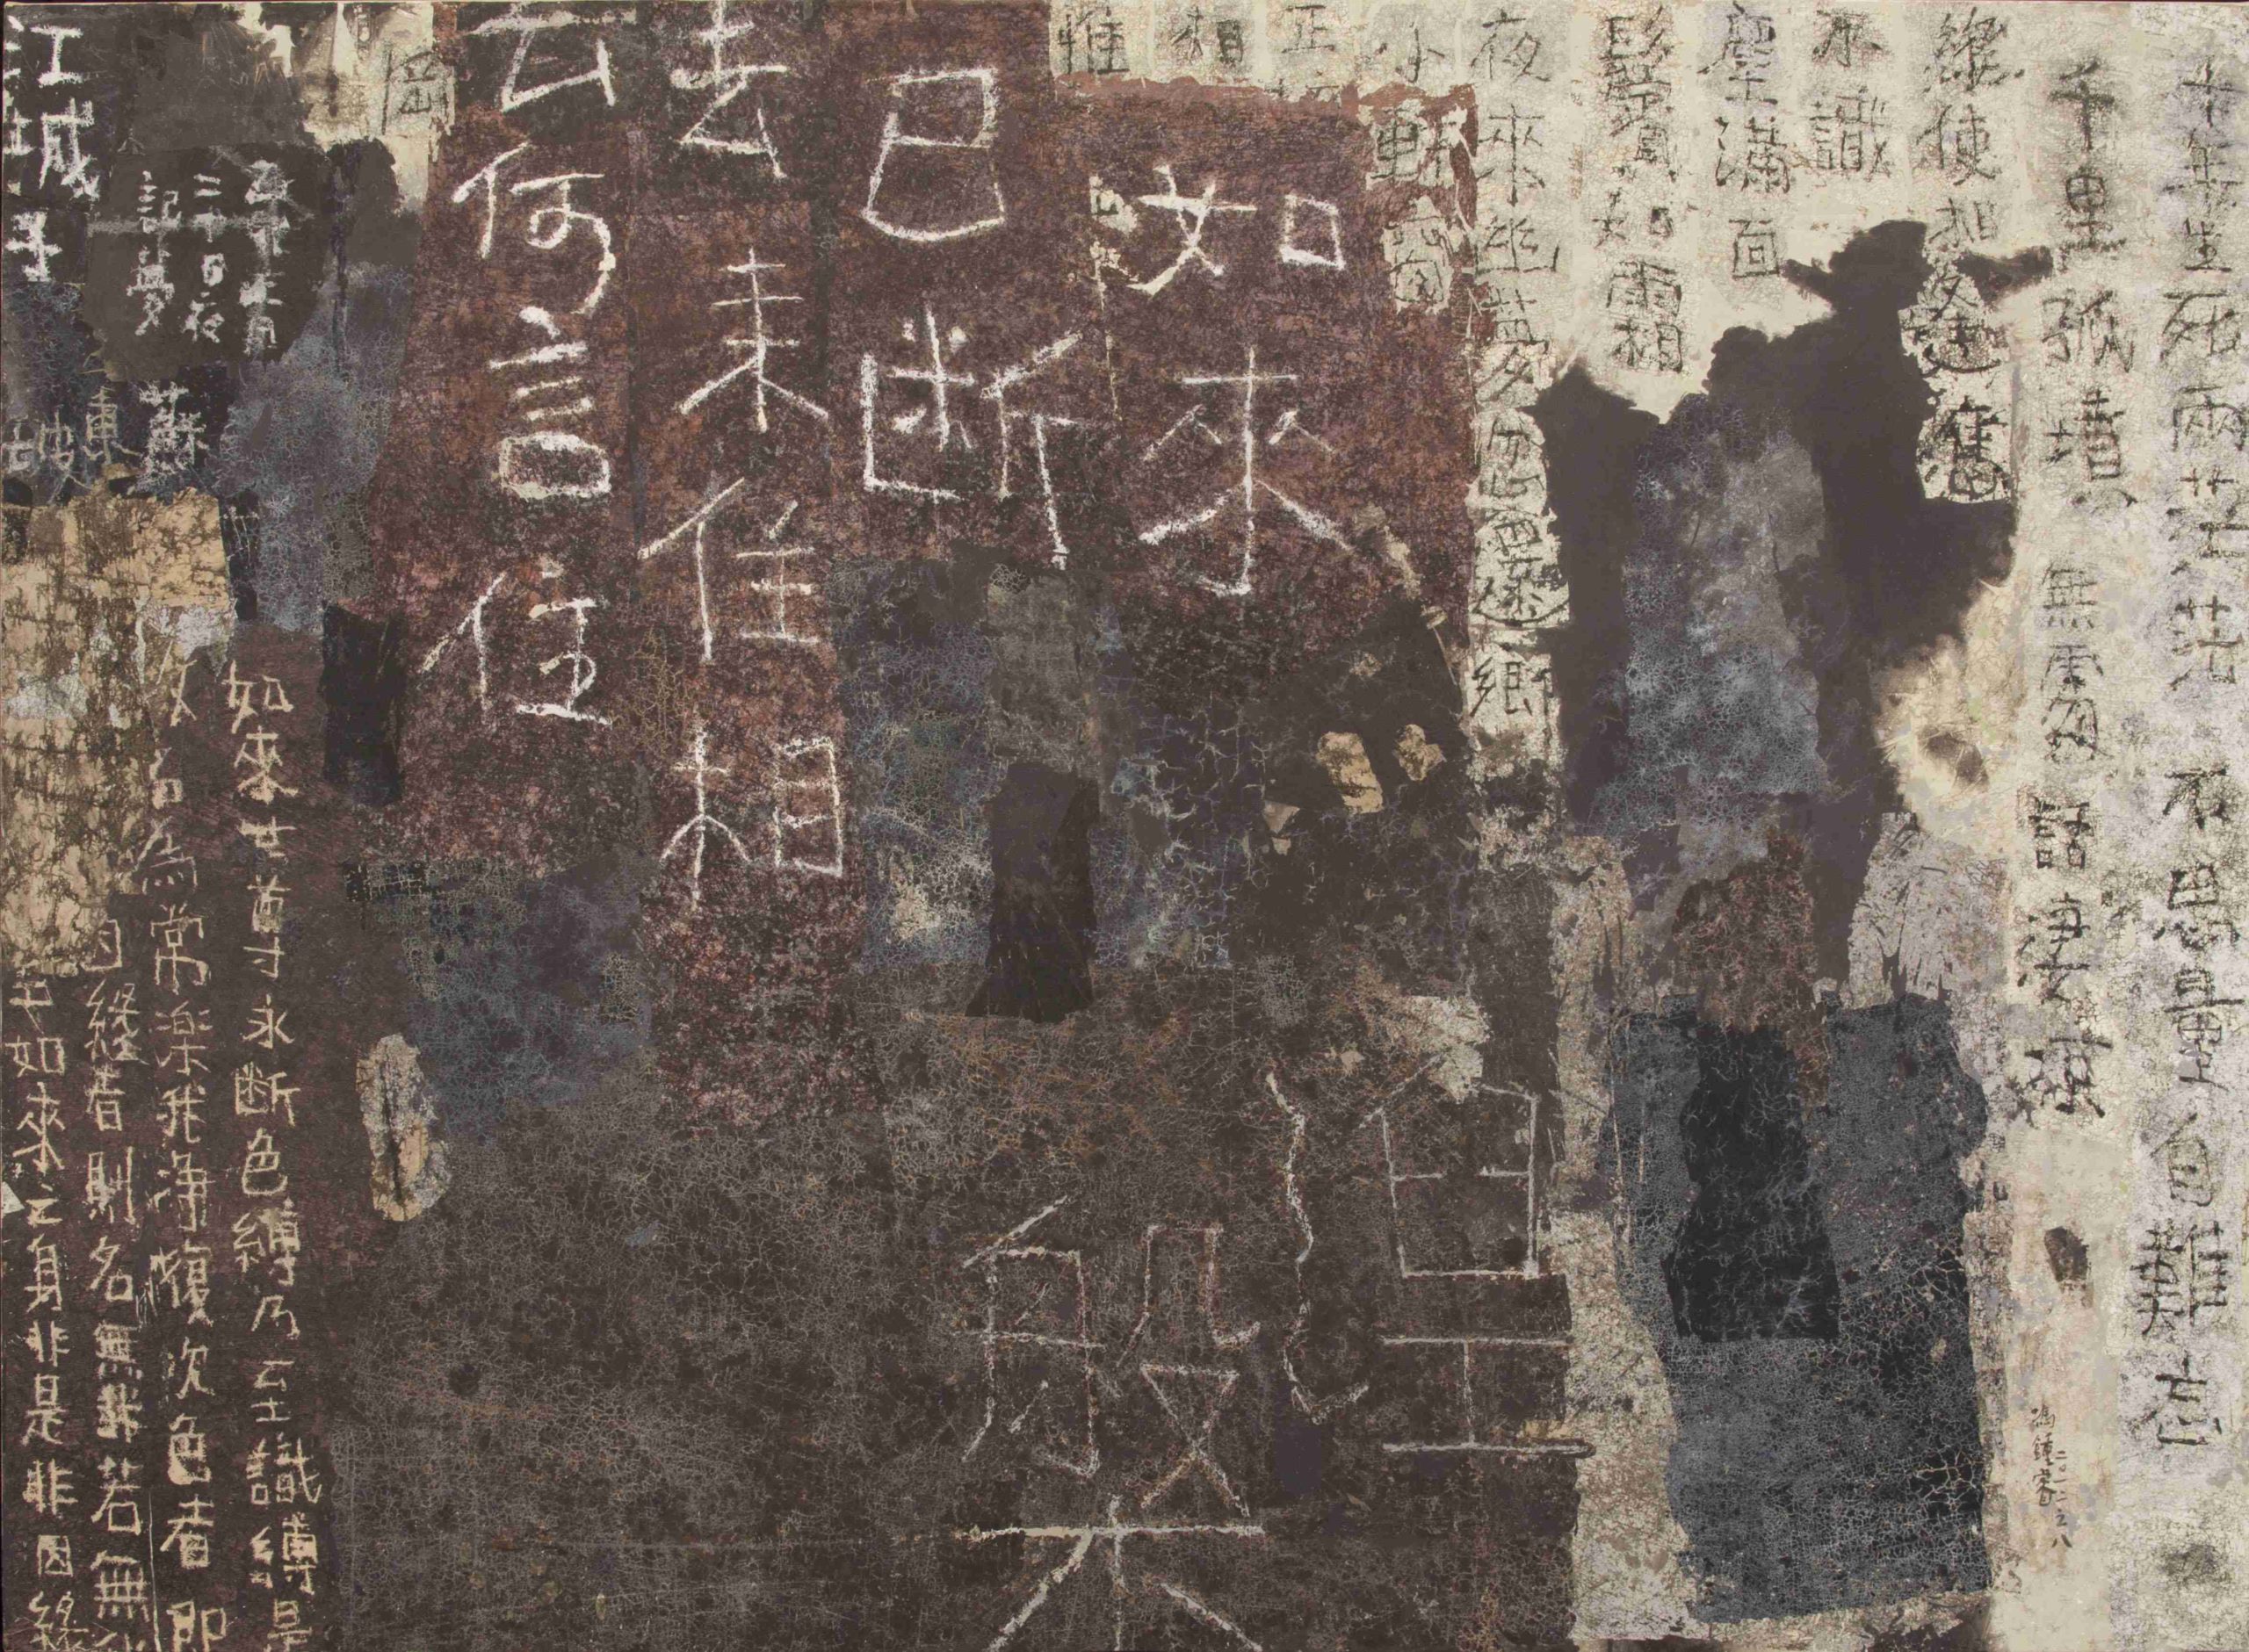 十年生死兩茫茫 不思量自難忘
千里孤墳 無處話淒涼
縱使相逢應
不識
塵滿面
鬢如霜
夜來幽夢忽還鄉
小軒窗
正
相
惟
如來
已斷
去來住相
云何言住
涅槃
岡
江城子
乙卯正月
二十日夜
記夢
蘇東坡
如來世尊永斷色縛乃至識縛是
故名為常樂我淨復次色者即
因緣者則名無我若無
如來之身非是非因緣
馮鍾睿